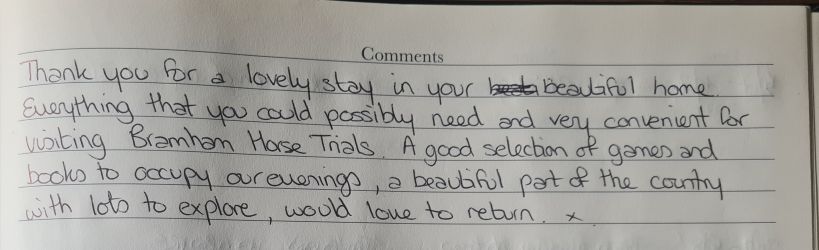 Comments
Thank you for a lovely stay in your beautiful home.
Everything that you could possibly need and very convenient for
visiting Bramham Horse Trials. A good selection of games and
books to occupy our evenings, a beautiful part of the country
with lots to explore, would love to return. x